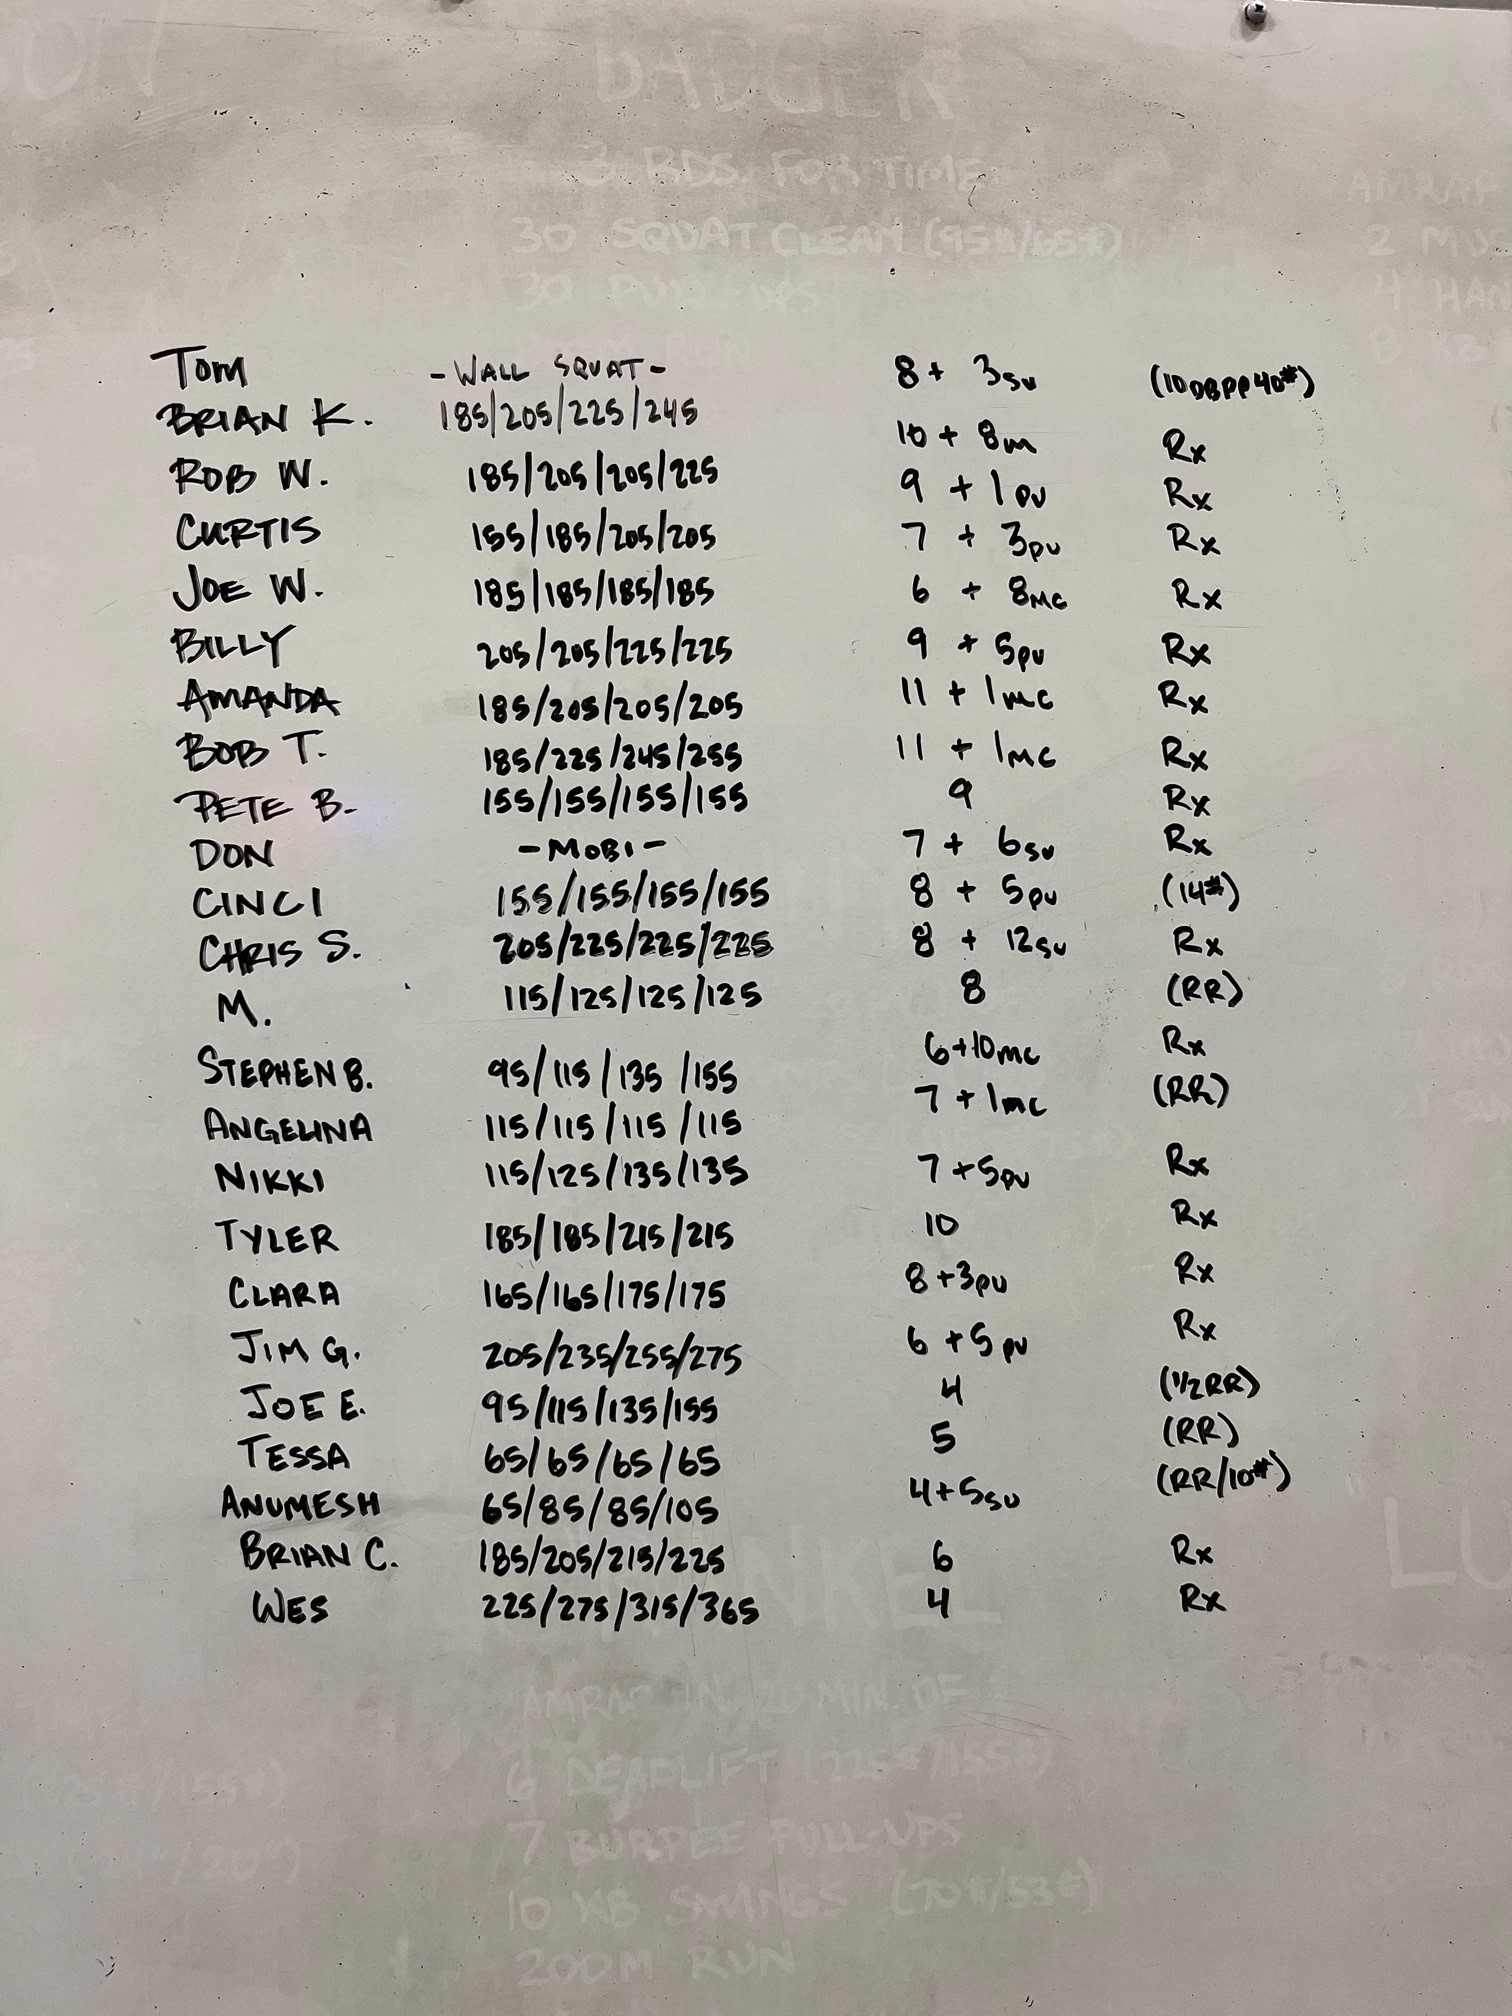 BADGER
3 RDS. FOR TIME
30 SQUAT CLEAN (95#/65#)
30 PULL-UPS
RUN
AMRAP
2 MUS
4 HAN
8
Tom -WALL SQUAT- 8 + 3su (10DBPP40#)
BRIAN K. 185/205/225/245 10 + 8m Rx
ROB W. 185/205/205/225 9 + 1pu Rx
CURTIS 155/185/205/205 7 + 3pu Rx
JOE W. 185/185/185/185 6 + 8mc Rx
BILLY 205/205/225/225 9 + 5pu Rx
AMANDA 185/205/205/205 11 + 1mc Rx
BOB T. 185/225/245/255 11 + 1mc Rx
PETE B. 155/155/155/155 9 Rx
DON -MOBI- 7 + 6su Rx
CINCI 155/155/155/155 8 + 5pu (14#)
CHRIS S. 205/225/225/225 8 + 12su Rx
M. 115/125/125/125 8 (RR)
STEPHEN B. 95/115/135/155 6+10mc Rx
ANGELINA 115/115/115/115 7+1mc (RR)
NIKKI 115/125/135/135 7+5pu Rx
TYLER 185/185/215/215 10 Rx
CLARA 165/165/175/175 8+3pu Rx
JIM G. 205/235/255/275 6+5pu Rx
JOE E. 95/115/135/155 4 (1/2RR)
TESSA 65/65/65/65 5 (RR)
ANUMESH 65/85/85/105 4+5su (RR/10#)
BRIAN C. 185/205/215/225 6 Rx
WES 225/275/315/365 4 Rx
"LU
AMRAP IN 20 MIN. OF
6 DEADLIFT (225#/155#)
7 BURPEE PULL-UPS
10 KB SWINGS (70#/53#)
200M RUN
(24"/20")